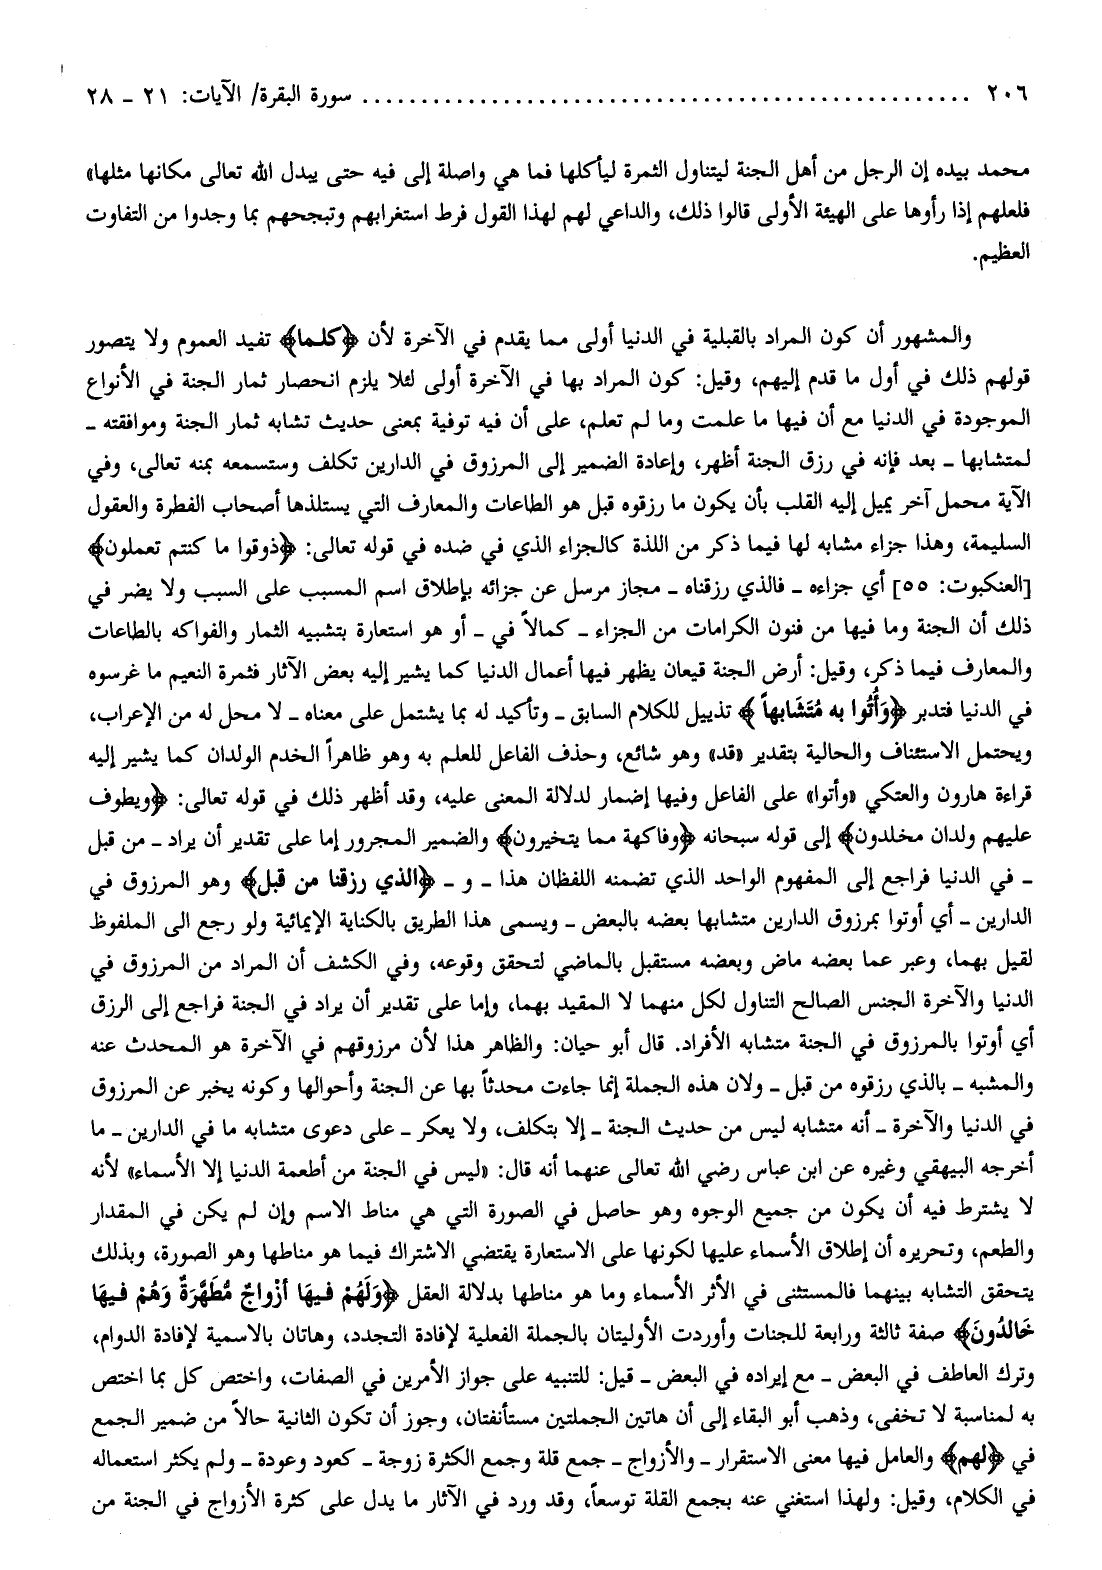 ٢٠٦ ................................................. سورة البقرة/ الآيات: ٢١ ـ ٢٨
محمد بيده إن الرجل من أهل الجنة ليتناول الثمرة ليأكلها فما هي واصلة إلى فيه حتى يبدل الله تعالى مكانها مثلها»
فلعلهم إذا رأوها على الهيئة الأولى قالوا ذلك، والداعي لهم لهذا القول فرط استغرابهم وتبجحهم بما وجدوا من التفاوت
العظيم.
والمشهور أن كون المراد بالقبلية في الدنيا أولى مما يقدم في الآخرة لأن ﴿كلما﴾ تفيد العموم ولا يتصور
قولهم ذلك في أول ما قدم إليهم، وقيل: كون المراد بها في الآخرة أولى لئلا يلزم انحصار ثمار الجنة في الأنواع
الموجودة في الدنيا مع أن فيها ما علمت وما لم تعلم، على أن فيه توفية بمعنى حديث تشابه ثمار الجنة وموافقته ـ
لمتشابها ـ بعد فإنه في رزق الجنة أظهر، وإعادة الضمير إلى المرزوق في الدارين تكلف وستسمعه بمنه تعالى، وفي
الآية محمل آخر يميل إليه القلب بأن يكون ما رزقوه قبل هو الطاعات والمعارف التي يستلذها أصحاب الفطرة والعقول
السليمة، وهذا جزاء مشابه لها فيما ذكر من اللذة كالجزاء الذي في ضده في قوله تعالى: ﴿ذوقوا ما كنتم تعملون﴾
[العنكبوت: ٥٥] أي جزاءه ـ فالذي رزقناه ـ مجاز مرسل عن جزائه بإطلاق اسم المسبب على السبب ولا يضر في
ذلك أن الجنة وما فيها من فنون الكرامات من الجزاء ـ كمالاً في ـ أو هو استعارة بتشبيه الثمار والفواكه بالطاعات
والمعارف فيما ذكر، وقيل: أرض الجنة قيعان يظهر فيها أعمال الدنيا كما يشير إليه بعض الآثار فثمرة النعيم ما غرسوه
في الدنيا فتدبر ﴿وَأُتُوا به مُتَشَابهاً﴾ تذييل للكلام السابق ـ وتأكيد له بما يشتمل على معناه ـ لا محل له من الإعراب،
ويحتمل الاستئناف والحالية بتقدير «قد» وهو شائع، وحذف الفاعل للعلم به وهو ظاهراً الخدم الولدان كما يشير إليه
قراءة هارون والعتكي «وأتوا» على الفاعل وفيها إضمار لدلالة المعنى عليه، وقد أظهر ذلك في قوله تعالى: ﴿ويطوف
عليهم ولدان مخلدون﴾ إلى قوله سبحانه ﴿وفاكهة مما يتخيرون﴾ والضمير المجرور إما على تقدير أن يراد ـ من قبل
ـ في الدنيا فراجع إلى المفهوم الواحد الذي تضمنه اللفظان هذا ـ و ـ ﴿الذي رزقنا من قبل﴾ وهو المرزوق في
الدارين ـ أي أوتوا بمرزوق الدارين متشابها بعضه بالبعض ـ ويسمى هذا الطريق بالكناية الإيمائية ولو رجع الى الملفوظ
لقيل بهما، وعبر عما بعضه ماض وبعضه مستقبل بالماضي لتحقق وقوعه، وفي الكشف أن المراد من المرزوق في
الدنيا والآخرة الجنس الصالح التناول لكل منهما لا المقيد بهما، وإما على تقدير أن يراد في الجنة فراجع إلى الرزق
أي أوتوا بالمرزوق في الجنة متشابه الأفراد. قال أبو حيان: والظاهر هذا لأن مرزوقهم في الآخرة هو المحدث عنه
والمشبه ـ بالذي رزقوه من قبل ـ ولان هذه الجملة إنما جاءت محدثاً بها عن الجنة وأحوالها وكونه يخبر عن المرزوق
في الدنيا والآخرة ـ أنه متشابه ليس من حديث الجنة ـ إلا بتكلف، ولا يعكر ـ على دعوى متشابه ما في الدارين ـ ما
أخرجه البيهقي وغيره عن ابن عباس رضي الله تعالى عنهما أنه قال: «ليس في الجنة من أطعمة الدنيا إلا الأسماء» لأنه
لا يشترط فيه أن يكون من جميع الوجوه وهو حاصل في الصورة التي هي مناط الاسم وإن لم يكن في المقدار
والطعم، وتحريره أن إطلاق الأسماء عليها لكونها على الاستعارة يقتضي الاشتراك فيما هو مناطها وهو الصورة، وبذلك
يتحقق التشابه بينهما فالمستثنى في الأثر الأسماء وما هو مناطها بدلالة العقل ﴿وَلَهُمْ فيهَا أَزْواجٌ مُّطَهَّرَةٌ وَهُمْ فيهَا
خَالدُونَ﴾ صفة ثالثة ورابعة للجنات وأوردت الأوليتان بالجملة الفعلية لإفادة التجدد، وهاتان بالاسمية لإفادة الدوام،
وترك العاطف في البعض ـ مع إيراده في البعض ـ قيل: للتنبيه على جواز الأمرين في الصفات، واختص كل بما اختص
به لمناسبة لا تخفى، وذهب أبو البقاء إلى أن هاتين الجملتين مستأنفتان، وجوز أن تكون الثانية حالاً من ضمير الجمع
في ﴿لهم﴾ والعامل فيها معنى الاستقرار ـ والأزواج ـ جمع قلة وجمع الكثرة زوجة ـ كعود وعودة ـ ولم يكثر استعماله
في الكلام، وقيل: ولهذا استغني عنه بجمع القلة توسعاً، وقد ورد في الآثار ما يدل على كثرة الأزواج في الجنة من